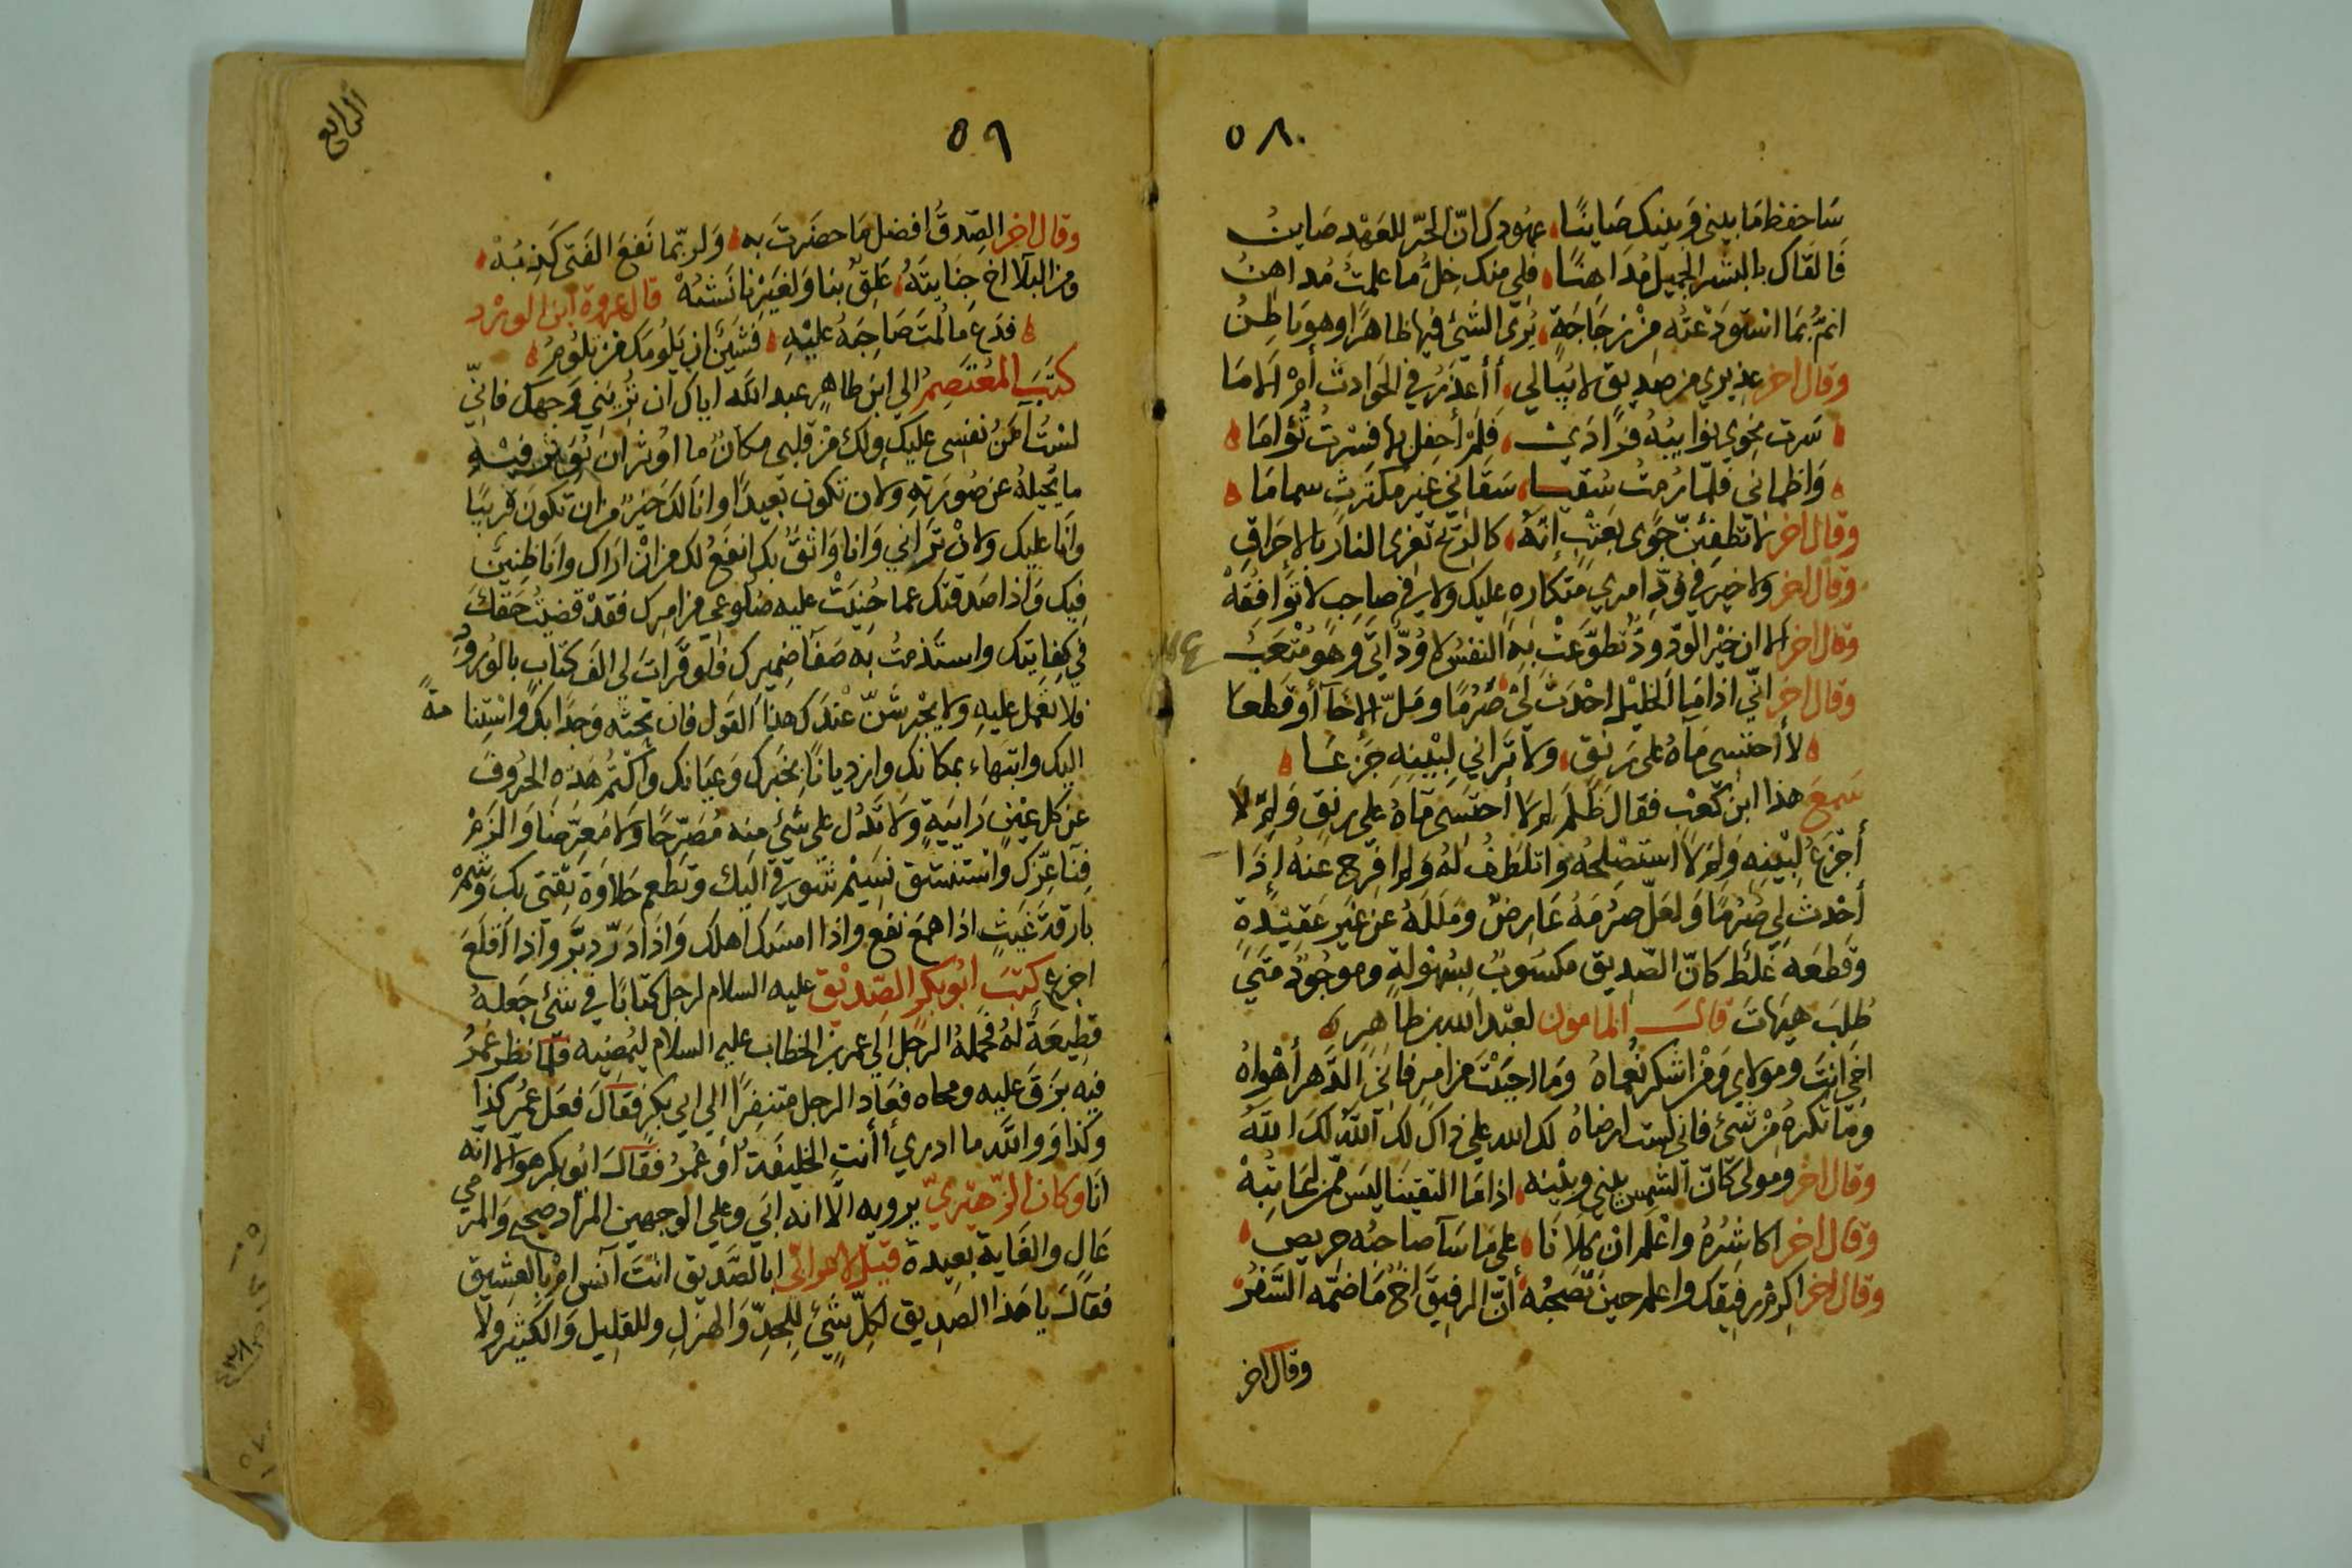 ٥٨
سَاحفظ مَا بيني وَبينك صَاينًا عهُودك انّ الحُرّ للعَهْد صَاينُ
فَالقَاك بالبشر الجميل مُدَاهنًا فلي منك خِلٌّ ما علمتُ مُداهنُ
انمُّ بمَا استَودَعْتُه مِنْ زجَاجَةٍ يُرَى الشئ فيها ظاهرًا وهو بَاطِنُ
وقال اخر عذيري من صديق لا يُبَالي أأعذَرُ في الحَوادث أمْ اَلامَا
سَرت نحوي نوايبُه فُرَادَى فلَمْ أحفل بها فسَرتْ تُؤامَا
وَاظماني فلمّا رُمتُ سُقيا سَقَاني غيرَ مكترثٍ سمامَا
وقال اخر لا تطفئنّ جَوًى بعَتْبٍ إنَّهُ كالرّيح تغري النارَ بالإحرَاق
وقال اخر ولا خير في وُدّ امرئ متكاره عليك ولا في صاحِبٍ لا تُوَافقُهْ
وقال اخر الا ان خيْرَ الوّد وُدّ تطوّعَتْ بهِ النفسُ لا وُدٌّ اتى وهو مُتْعَبُ
وقال اخر انّي اذا مَا الخليْل احْدَثَ لي صُرْمًا ومَلّ الإخآ أو قَطعَا
لا أحتسى مَاهُ على رَنَق ولا تَراني لبَيْنهِ جَزعَا
سَمعَ هذا ابن كَعْب فقال ظلَمَ لمَ لا أحتسَى مَآهُ على رنَقٍ وَلِمَ لا
أجْزَعُ لبَيْنِه وَلمَ لا استصْلحُه واتلطَفُ لهُ وَلم افرج عنهُ إذَا
أحْدثَ لي صُرْمًا وَلعَلّ صرْمَهُ عَارضٌ ومَلَلهُ عن غيرَ عَقِيْدةٍ
وقطعَه غَلَط كانّ الصّديق مكسُوبٌ بسُهُولَةٍ وموجُودٌ مَتَى
طُلبَ هيَهَات قالَ المامون لعبْد الله بن طاهِرٍ
اخي انتَ ومولاي ومَنْ اشكر نُعماهُ وَما احببْتَ من امرٍ فاني الدّهرَ أهْوَاهُ
وَمَا تكرَهُ مِنْ شئ فاني لست ارضاهُ لك الله على ذاك لكَ اللهُ لكَ اللهُ
وقال اخر ومولى كانّ الشمس بيني وبيْنه اذا مَا التقينَا ليَس ممّن اُعَاتبُهْ
وقال اخر اكاشرُهُ واعْلم ان كِلاَنَا على مَا سَآ صاحبُه حريص
وقال اخر اكرِمْ رفيقك واعلم حينَ تصحبُه أنّ الرفيقَ اخٌ مَا ضمّه السَّفرُ
وقال اخر
٥٩
الرابع
وقال اخر الصّدقُ افضل مَا حضَرتَ به وَلرُبّما نَفعَ الفَتى كَذبُهْ
ومن البَلآ اخ جنَايتَهُ عَلِقٌ بنا وَلغيَرنا نَشَبُهْ قال عروة ابن الورْد
فدَع مَا لمتَ صَاحِبَهُ عليْهِ فشَيْنٌ ان يَلومَك مَنْ تلوُمُ
كتَبَ المُعتَصِمُ الي ابنَ طاهِرٍ عبد الله اياك ان تُريَني وَجهكَ فانّي
لسْتُ آمَنُ نفسِى عليك ولك مِنْ قلبي مكانٌ مَا اوُثر ان يُؤثر فيْهِ
ما يُحيلهُ عن صُورَتهِ ولان تكون بعيدًا وانا لَك خيْرٌ من ان تكون قريبًا
وانا عليك ولانْ ترَاني وَانا وَاثقٌ بك انفَعُ لك من انْ ارَاك وانا ظنِينٌ
فيك وَاذا صَدقتك عما حُنيَتْ عليه ضلُوعي من امرك فقدْ قضيتُ حَقكَ
في كفايتك واستَدمتُ به صَفآ ضميرك فلو قَرات لي الف كتاب بالورُودِ
فلا تعمل عليهِ ولا يُجْرِسَنّ عندَك هذا القول فان تحتَه وَجدًا بك وَاسْتِنامةً
اليك وابتهَاء بمكانك وازديانًا بخبَرك وَعيَانك وَاكتُمْ هَذه الحُروفَ
عن كل عيْنٍ رَابيَةٍ وَلا تَدُل على شئ منه مُصَرّحًا ولا معَرّضًا وَالزمْ
فِنآ عِزّك وَاستَنشق نسيْمَ شوقي اليْك وتطعم حَلاوَة ثقتي بك وَشِمْ
بارقةَ غيثٍ اذا همَعَ نفع واذا امسَك اهلك وَاذا دَرّ دبَّر واذا اقلَعَ
اجزع كتبَ ابُوبكر الصّديْق عليه السلام لرجل كتابًا في شئ جَعلهُ
قطِيعَةً لهُ فحَملهُ الرجَل الي عمر بن الخطاب عليه السلام ليُمضيه فلَمّا نظر عُمرُ
فيه بزقَ عليه ومحاه فعَاد الرجل متنفِرًا الي ابي بكرٍ فقالَ فعَل عُمرُ كذا
وكذا وَوالله ما ادري أأنتِ الخليفَة أو عُمرُ فقالَ ابُوبكر هو الا انّه
انَا وكان الزهيَريّ يرويه الّا انه ابَي وعلي الوجهين المُرادُ صحيح وَالمرمي
عَالٍ والغاية بعيدة قيل لاعرابي ابالصَّديق انتَ آنس امْ بالعشيق
فقالَ يا هَذا الصّديق لكلّ شئٍ للجدّ وَالهزلِ وللقليل وَالكثير ولا